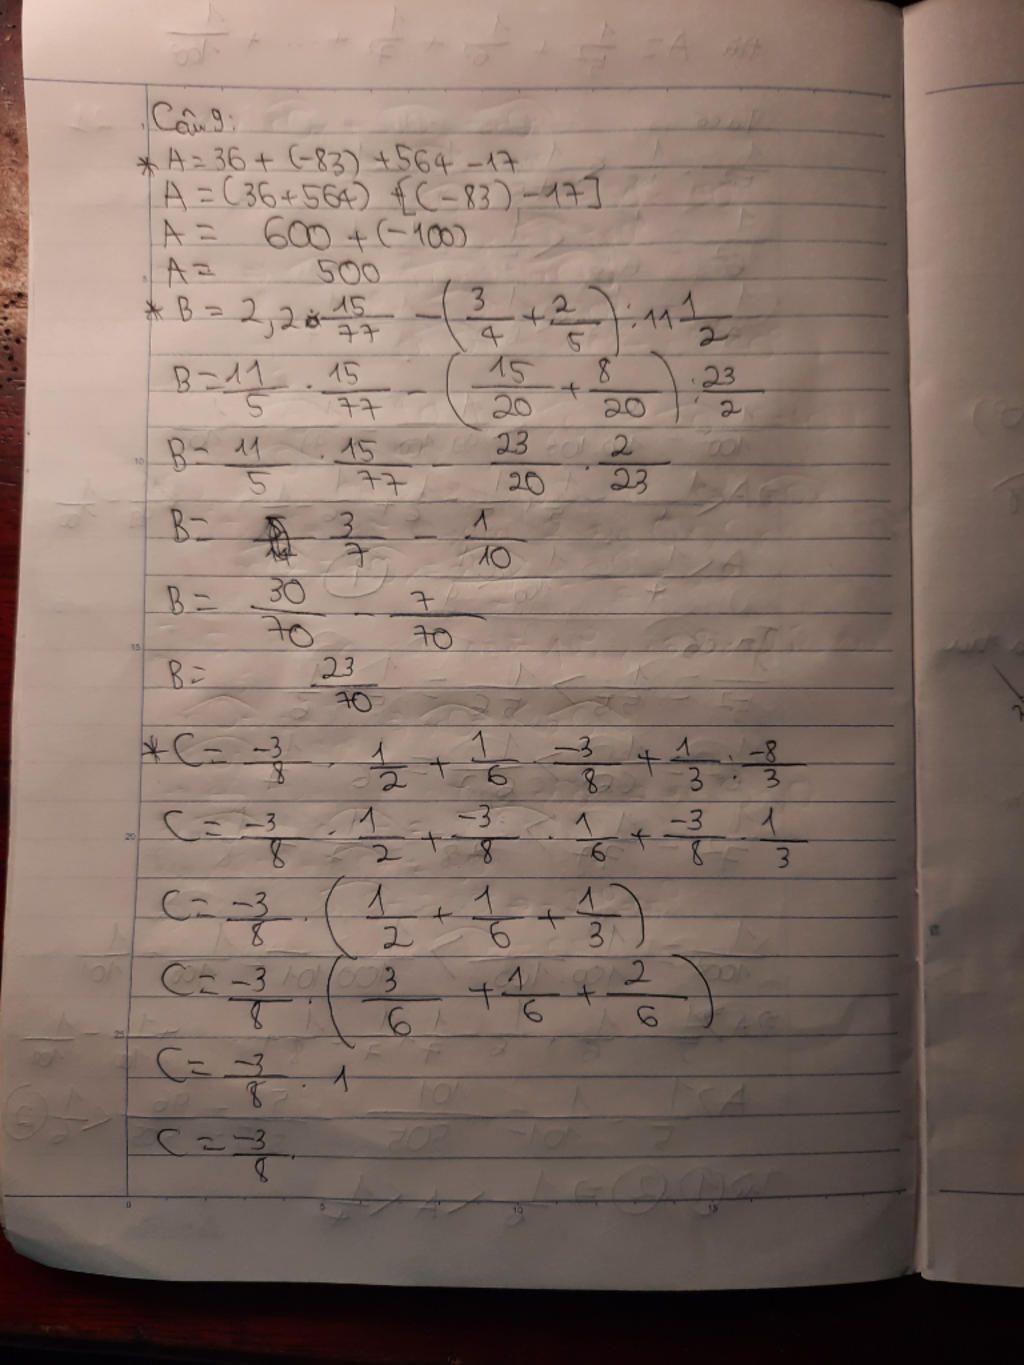 Câu 9:
* A = 36 + (-83) + 564 - 17
A = (36 + 564) + [(-83) - 17]
A = 600 + (-100)
A = 500
* B = 2,2 . 15/77 - (3/4 + 2/5) : 11 1/2
B = 11/5 . 15/77 - (15/20 + 8/20) : 23/2
B = 11/5 . 15/77 - 23/20 . 2/23
B = 3/7 - 1/10
B = 30/70 - 7/70
B = 23/70
* C = -3/8 . 1/2 + 1/6 . -3/8 + 1/3 : -8/3
C = -3/8 . 1/2 + -3/8 . 1/6 + -3/8 . 1/3
C = -3/8 . (1/2 + 1/6 + 1/3)
C = -3/8 . (3/6 + 1/6 + 2/6)
C = -3/8 . 1
C = -3/8.